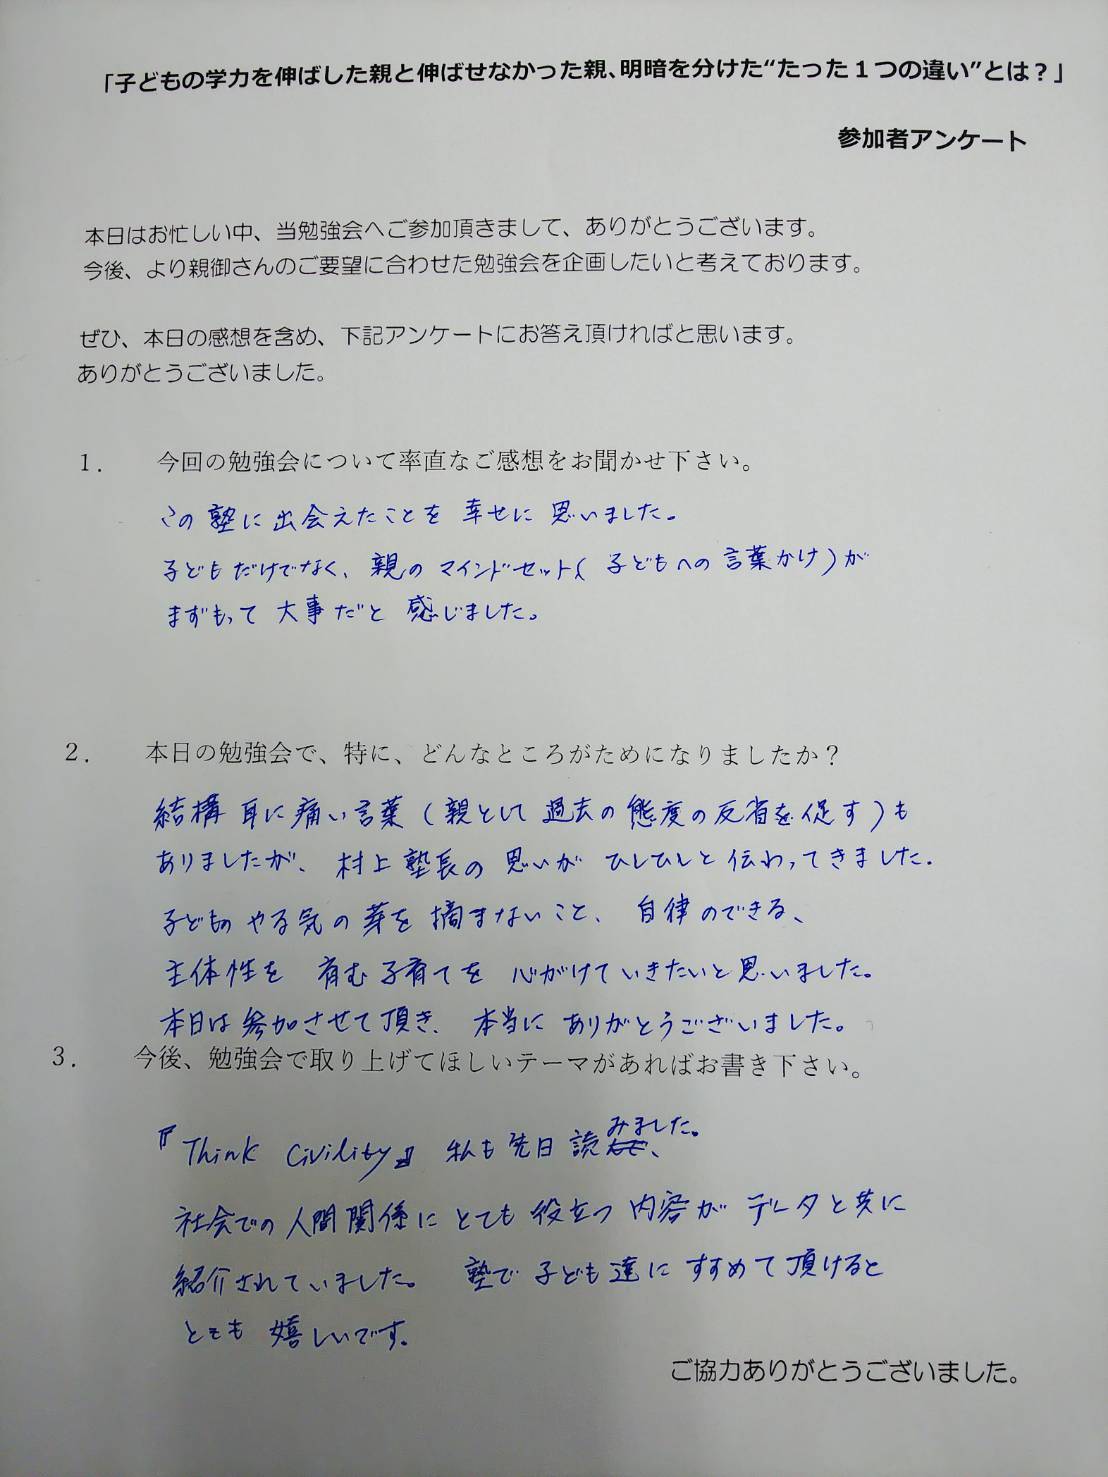 「子どもの学力を伸ばした親と伸ばせなかった親、明暗を分けた“たった１つの違い”とは？」
参加者アンケート
本日はお忙しい中、当勉強会へご参加頂きまして、ありがとうございます。
今後、より親御さんのご要望に合わせた勉強会を企画したいと考えております。
ぜひ、本日の感想を含め、下記アンケートにお答え頂ければと思います。
ありがとうございました。
１． 今回の勉強会について率直なご感想をお聞かせ下さい。
この塾に出会えたことを幸せに思いました。
子どもだけでなく、親のマインドセット（子どもへの言葉かけ）が
まずもって大事だと感じました。
２． 本日の勉強会で、特に、どんなところがためになりましたか？
結構耳に痛い言葉（親として過去の態度の反省を促す）も
ありましたが、村上塾長の思いがひしひしと伝わってきました.
子どものやる気の芽を摘まないこと、自律のできる、
主体性を育む子育てを心がけていきたいと思いました。
本日は参加させて頂き、本当にありがとうございました。
３． 今後、勉強会で取り上げてほしいテーマがあればお書き下さい。
『Think Civility』私も先日読みました。
社会での人間関係にとても役立つ内容がデータと共に
紹介されていました。塾で子ども達にすすめて頂けると
とても嬉しいです。
ご協力ありがとうございました。